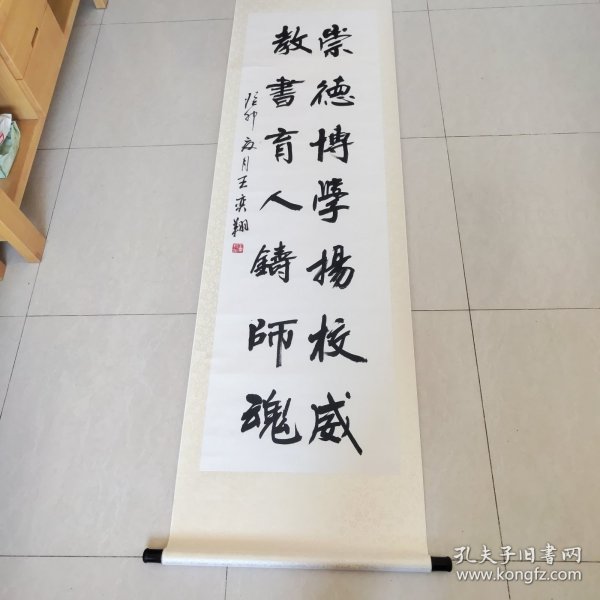 崇德博學揚校威
教書育人鑄師魂
癸卯夏月王奕翔
孔夫子旧书网
www.kongfz.com